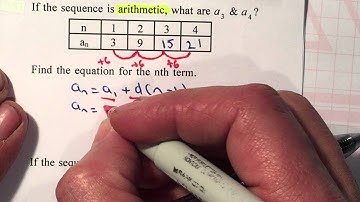 If the sequence is arithmetic, what are a₃ & a₄?
n 1 2 3 4
aₙ 3 9 15 21
+6 +6 +6
Find the equation for the nth term.
aₙ = a₁ + d(n-
aₙ =
If the sequ